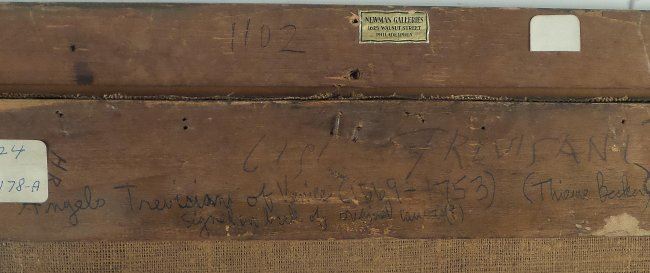 1102
NEWMAN GALLERIES
1625 WALNUT STREET
PHILADELPHIA
24
178-A
TREVISANI
Angelo Trevisani of Venice (1669-1753) (Thieme Becker)
Sign on back of original canvas(?)